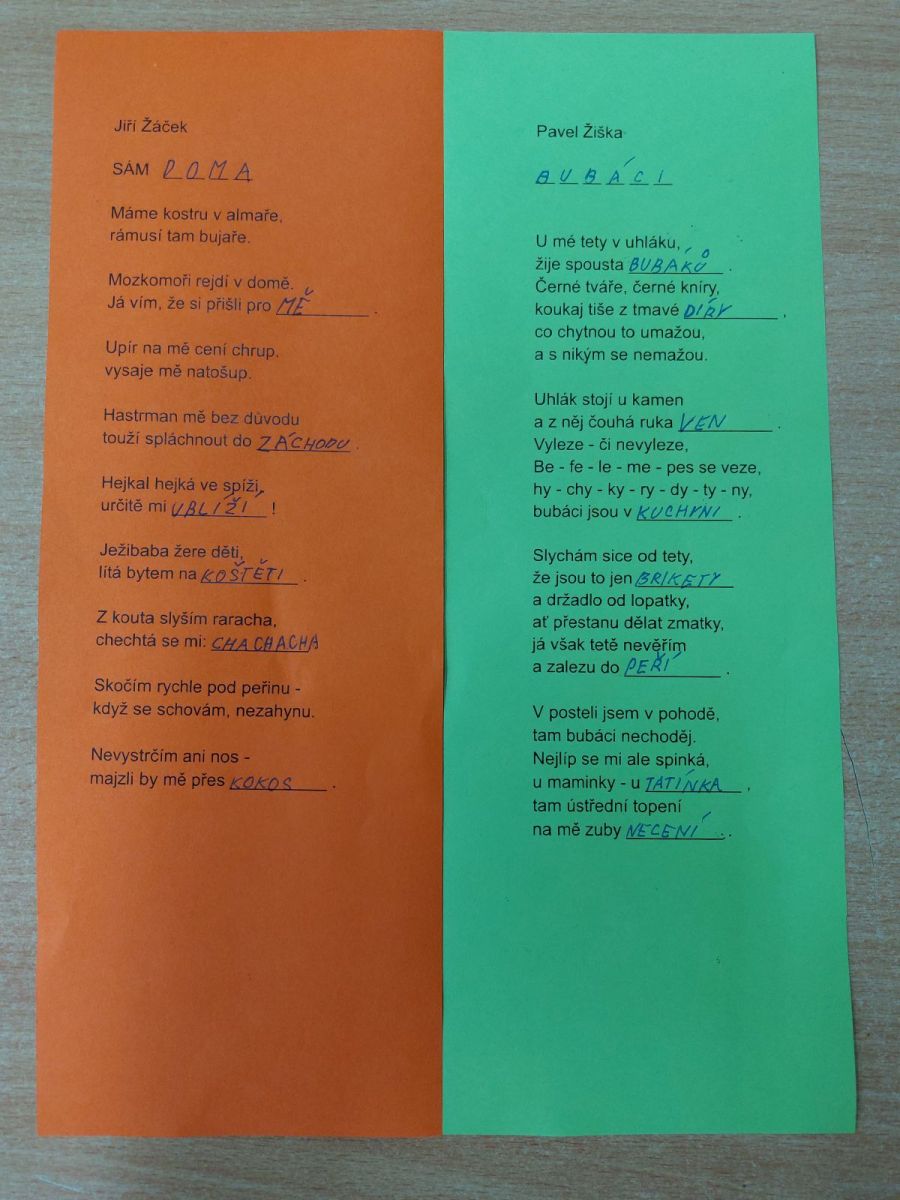 Jiří Žáček
SÁM DOMA
Máme kostru v almaře,
rámusí tam bujaře.
Mozkomoři rejdí v domě.
Já vím, že si přišli pro MĚ.
Upír na mě cení chrup.
vysaje mě natošup.
Hastrman mě bez důvodu
touží spláchnout do ZÁCHODU.
Hejkal hejká ve spíži,
určitě mi UBLÍŽÍ!
Ježibaba žere děti,
lítá bytem na KOŠTĚTI.
Z kouta slyším raracha,
chechtá se mi: CHACHACHA
Skočím rychle pod peřinu -
když se schovám, nezahynu.
Nevystrčím ani nos -
majzli by mě přes KOKOS.
Pavel Žiška
BUBÁCI
U mé tety v uhláku,
žije spousta BUBÁKŮ.
Černé tváře, černé kníry,
koukaj tiše z tmavé DÍRY,
co chytnou to umažou,
a s nikým se nemažou.
Uhlák stojí u kamen
a z něj čouhá ruka VEN.
Vyleze - či nevyleze,
Be - fe - le - me - pes se veze,
hy - chy - ky - ry - dy - ty - ny,
bubáci jsou v KUCHYNI.
Slychám sice od tety,
že jsou to jen BRIKETY
a držadlo od lopatky,
ať přestanu dělat zmatky,
já však tetě nevěřím
a zalezu do PEŘÍ.
V posteli jsem v pohodě,
tam bubáci nechoděj.
Nejlíp se mi ale spinká,
u maminky - u TATÍNKA,
tam ústřední topení
na mě zuby NECENÍ.